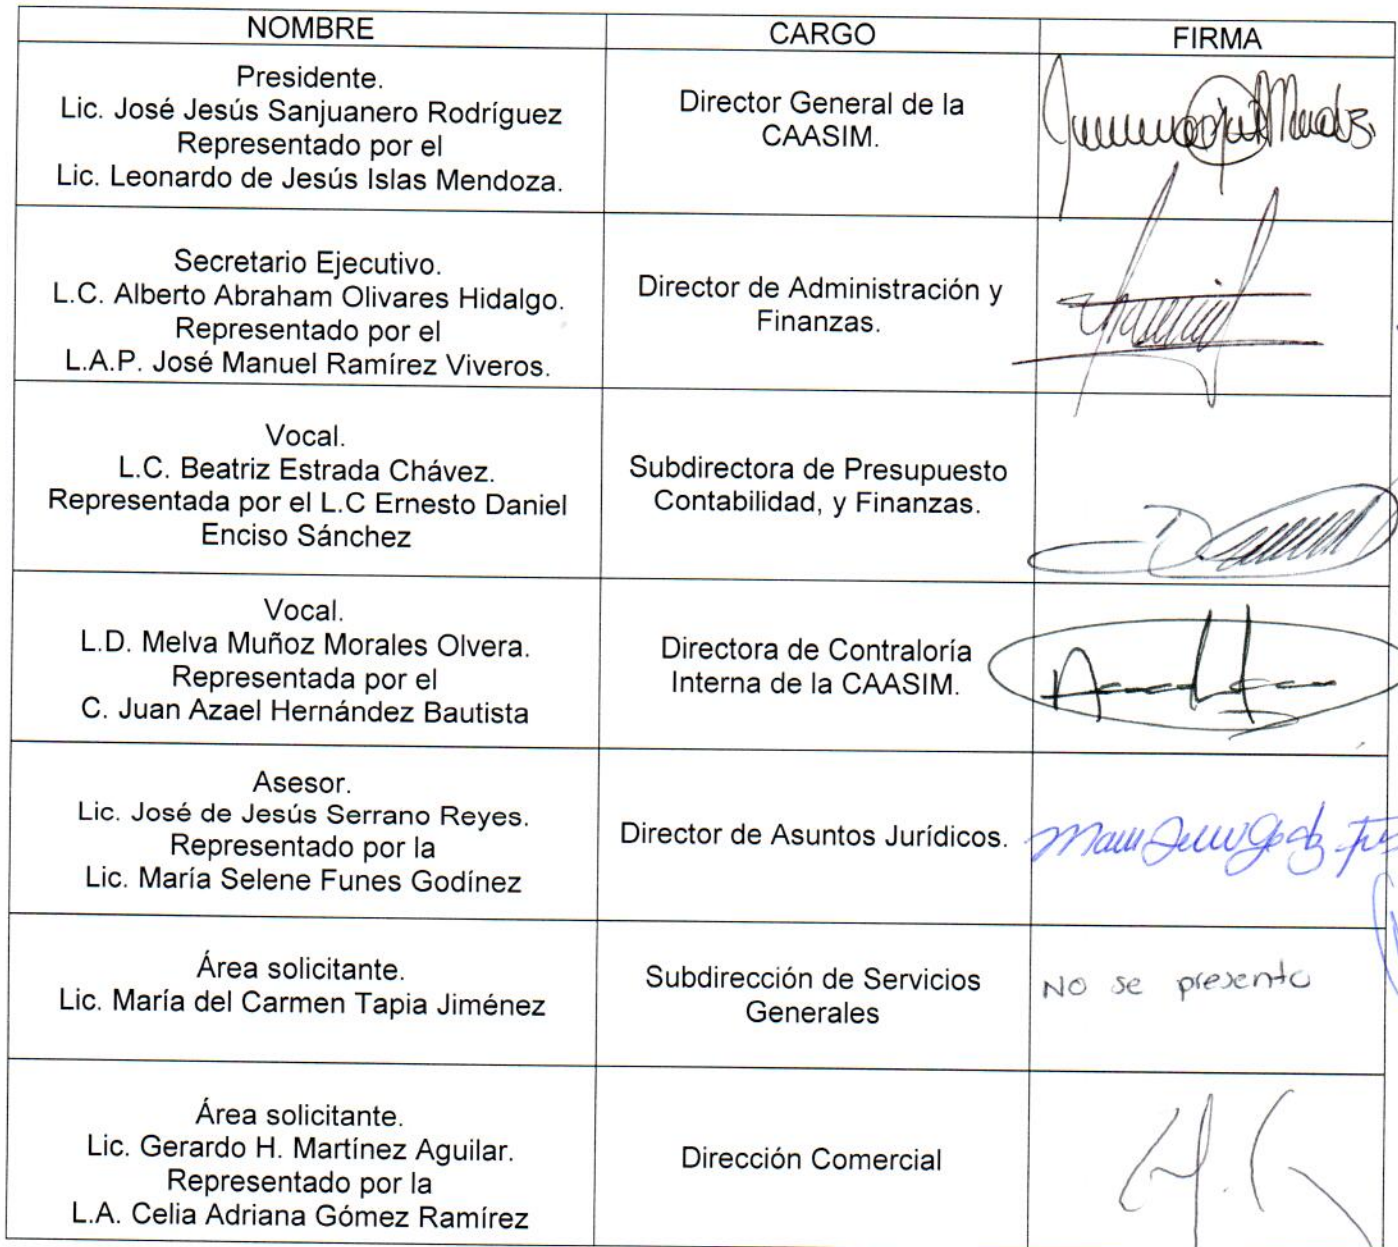 NOMBRE CARGO FIRMA
Presidente.
Lic. José Jesús Sanjuanero Rodríguez
Representado por el
Lic. Leonardo de Jesús Islas Mendoza.
Director General de la
CAASIM.
Secretario Ejecutivo.
L.C. Alberto Abraham Olivares Hidalgo.
Representado por el
L.A.P. José Manuel Ramírez Viveros.
Director de Administración y
Finanzas.
Vocal.
L.C. Beatriz Estrada Chávez.
Representada por el L.C Ernesto Daniel
Enciso Sánchez
Subdirectora de Presupuesto
Contabilidad, y Finanzas.
Vocal.
L.D. Melva Muñoz Morales Olvera.
Representada por el
C. Juan Azael Hernández Bautista
Directora de Contraloría
Interna de la CAASIM.
Asesor.
Lic. José de Jesús Serrano Reyes.
Representado por la
Lic. María Selene Funes Godínez
Director de Asuntos Jurídicos.
Área solicitante.
Lic. María del Carmen Tapia Jiménez
Subdirección de Servicios
Generales
No se presento
Área solicitante.
Lic. Gerardo H. Martínez Aguilar.
Representado por la
L.A. Celia Adriana Gómez Ramírez
Dirección Comercial